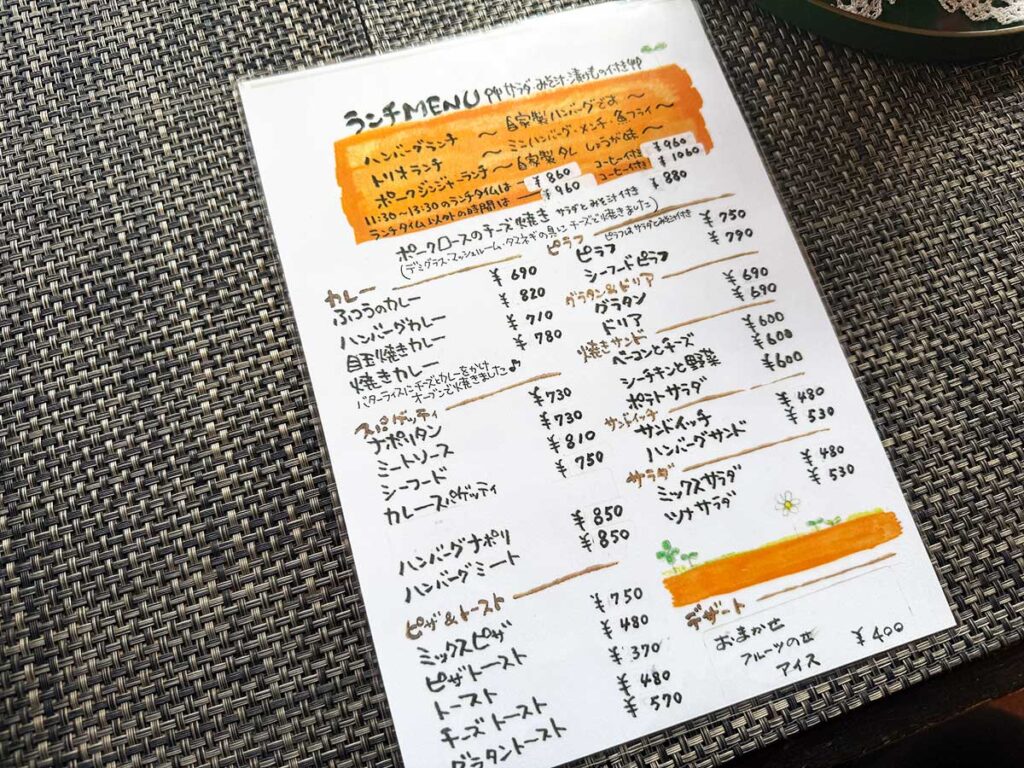 ランチMENU サラダ・みそ汁・漬けもの付き
ハンバーグランチ 〜自家製ハンバーグです〜
トリオランチ 〜ミニハンバーグ・メンチ・魚フライ〜
ポークジンジャーランチ 〜自家製タレ しょうが味〜
11:30〜13:30のランチタイムは ¥860 コーヒー付き ¥960
ランチタイム以外の時間は ¥960 コーヒー付き ¥1060
ポークロースのチーズ焼き サラダとみそ汁付き ¥880
(デミグラス・マッシュルーム・タマネギの具にチーズで焼きました)
カレー
ふつうのカレー ¥690
ハンバーグカレー ¥820
目玉焼きカレー ¥710
焼きカレー ¥780
バターライスにチーズとカレーをかけ
オーブンで焼きました♪
スパゲッティ
ナポリタン ¥730
ミートソース ¥730
シーフード ¥810
カレースパゲッティ ¥750
ハンバーグナポリ ¥850
ハンバーグミート ¥850
ピザ&トースト
ミックスピザ ¥750
ピザトースト ¥480
トースト ¥370
チーズトースト ¥480
グラタントースト ¥570
ピラフ ピラフはサラダとみそ汁付き
ピラフ ¥750
シーフードピラフ ¥790
グラタン&ドリア
グラタン ¥690
ドリア ¥690
焼きサンド
ベーコンとチーズ ¥600
シーチキンと野菜 ¥600
ポテトサラダ ¥600
サンドイッチ
サンドイッチ ¥480
ハンバーグサンド ¥530
サラダ
ミックスサラダ ¥480
ツナサラダ ¥530
デザート
おまかせ
フルーツのせ
アイス ¥400